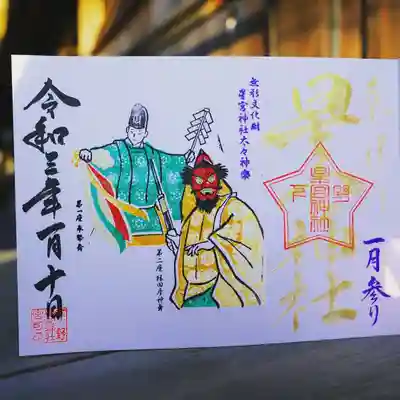 一月参り
星神社
星宮神社
無形文化財
星宮神社太々神楽
第二座猿田彦神舞
第一座奉幣舞
令和三年一月十日